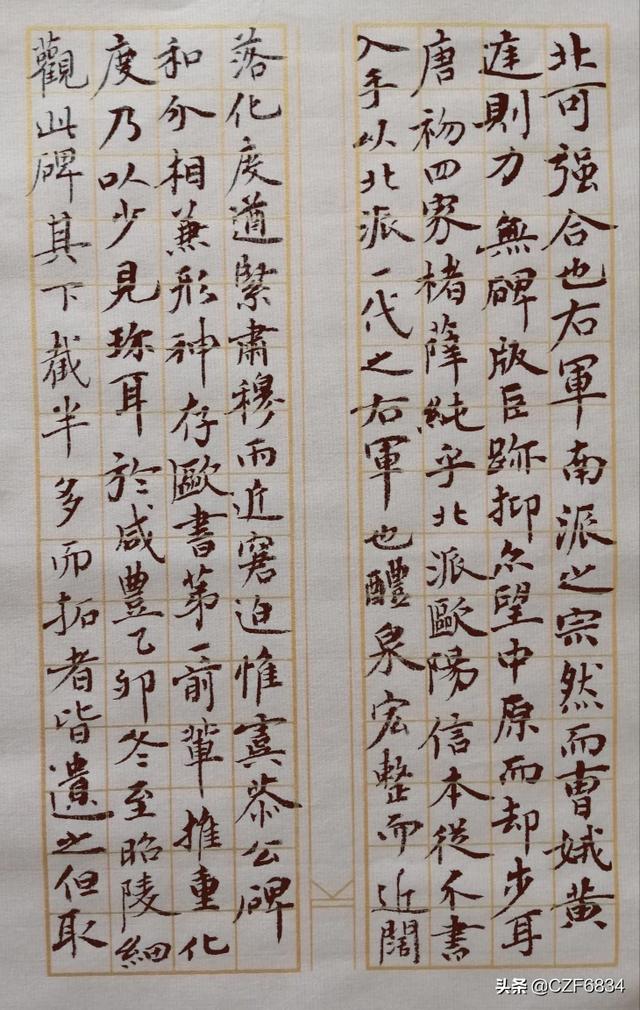 北可强合也右軍南派之宗然而曹娥黄
庭則力無碑版臣跡抑亦望中原而却步耳
唐初四家楮薛純乎北派歐陽信本從分書
入手以北派一代之右軍也醴泉宏整而近闊
落化度遒緊肅穆而近窘迫惟虞恭公碑
和介相兼形神存歐書第一前輩推重化
度乃以少見珎耳於咸豐乙卯冬至昭陵細
觀此碑其下截半多而拓者皆遺之但取
头条 @CZF6834